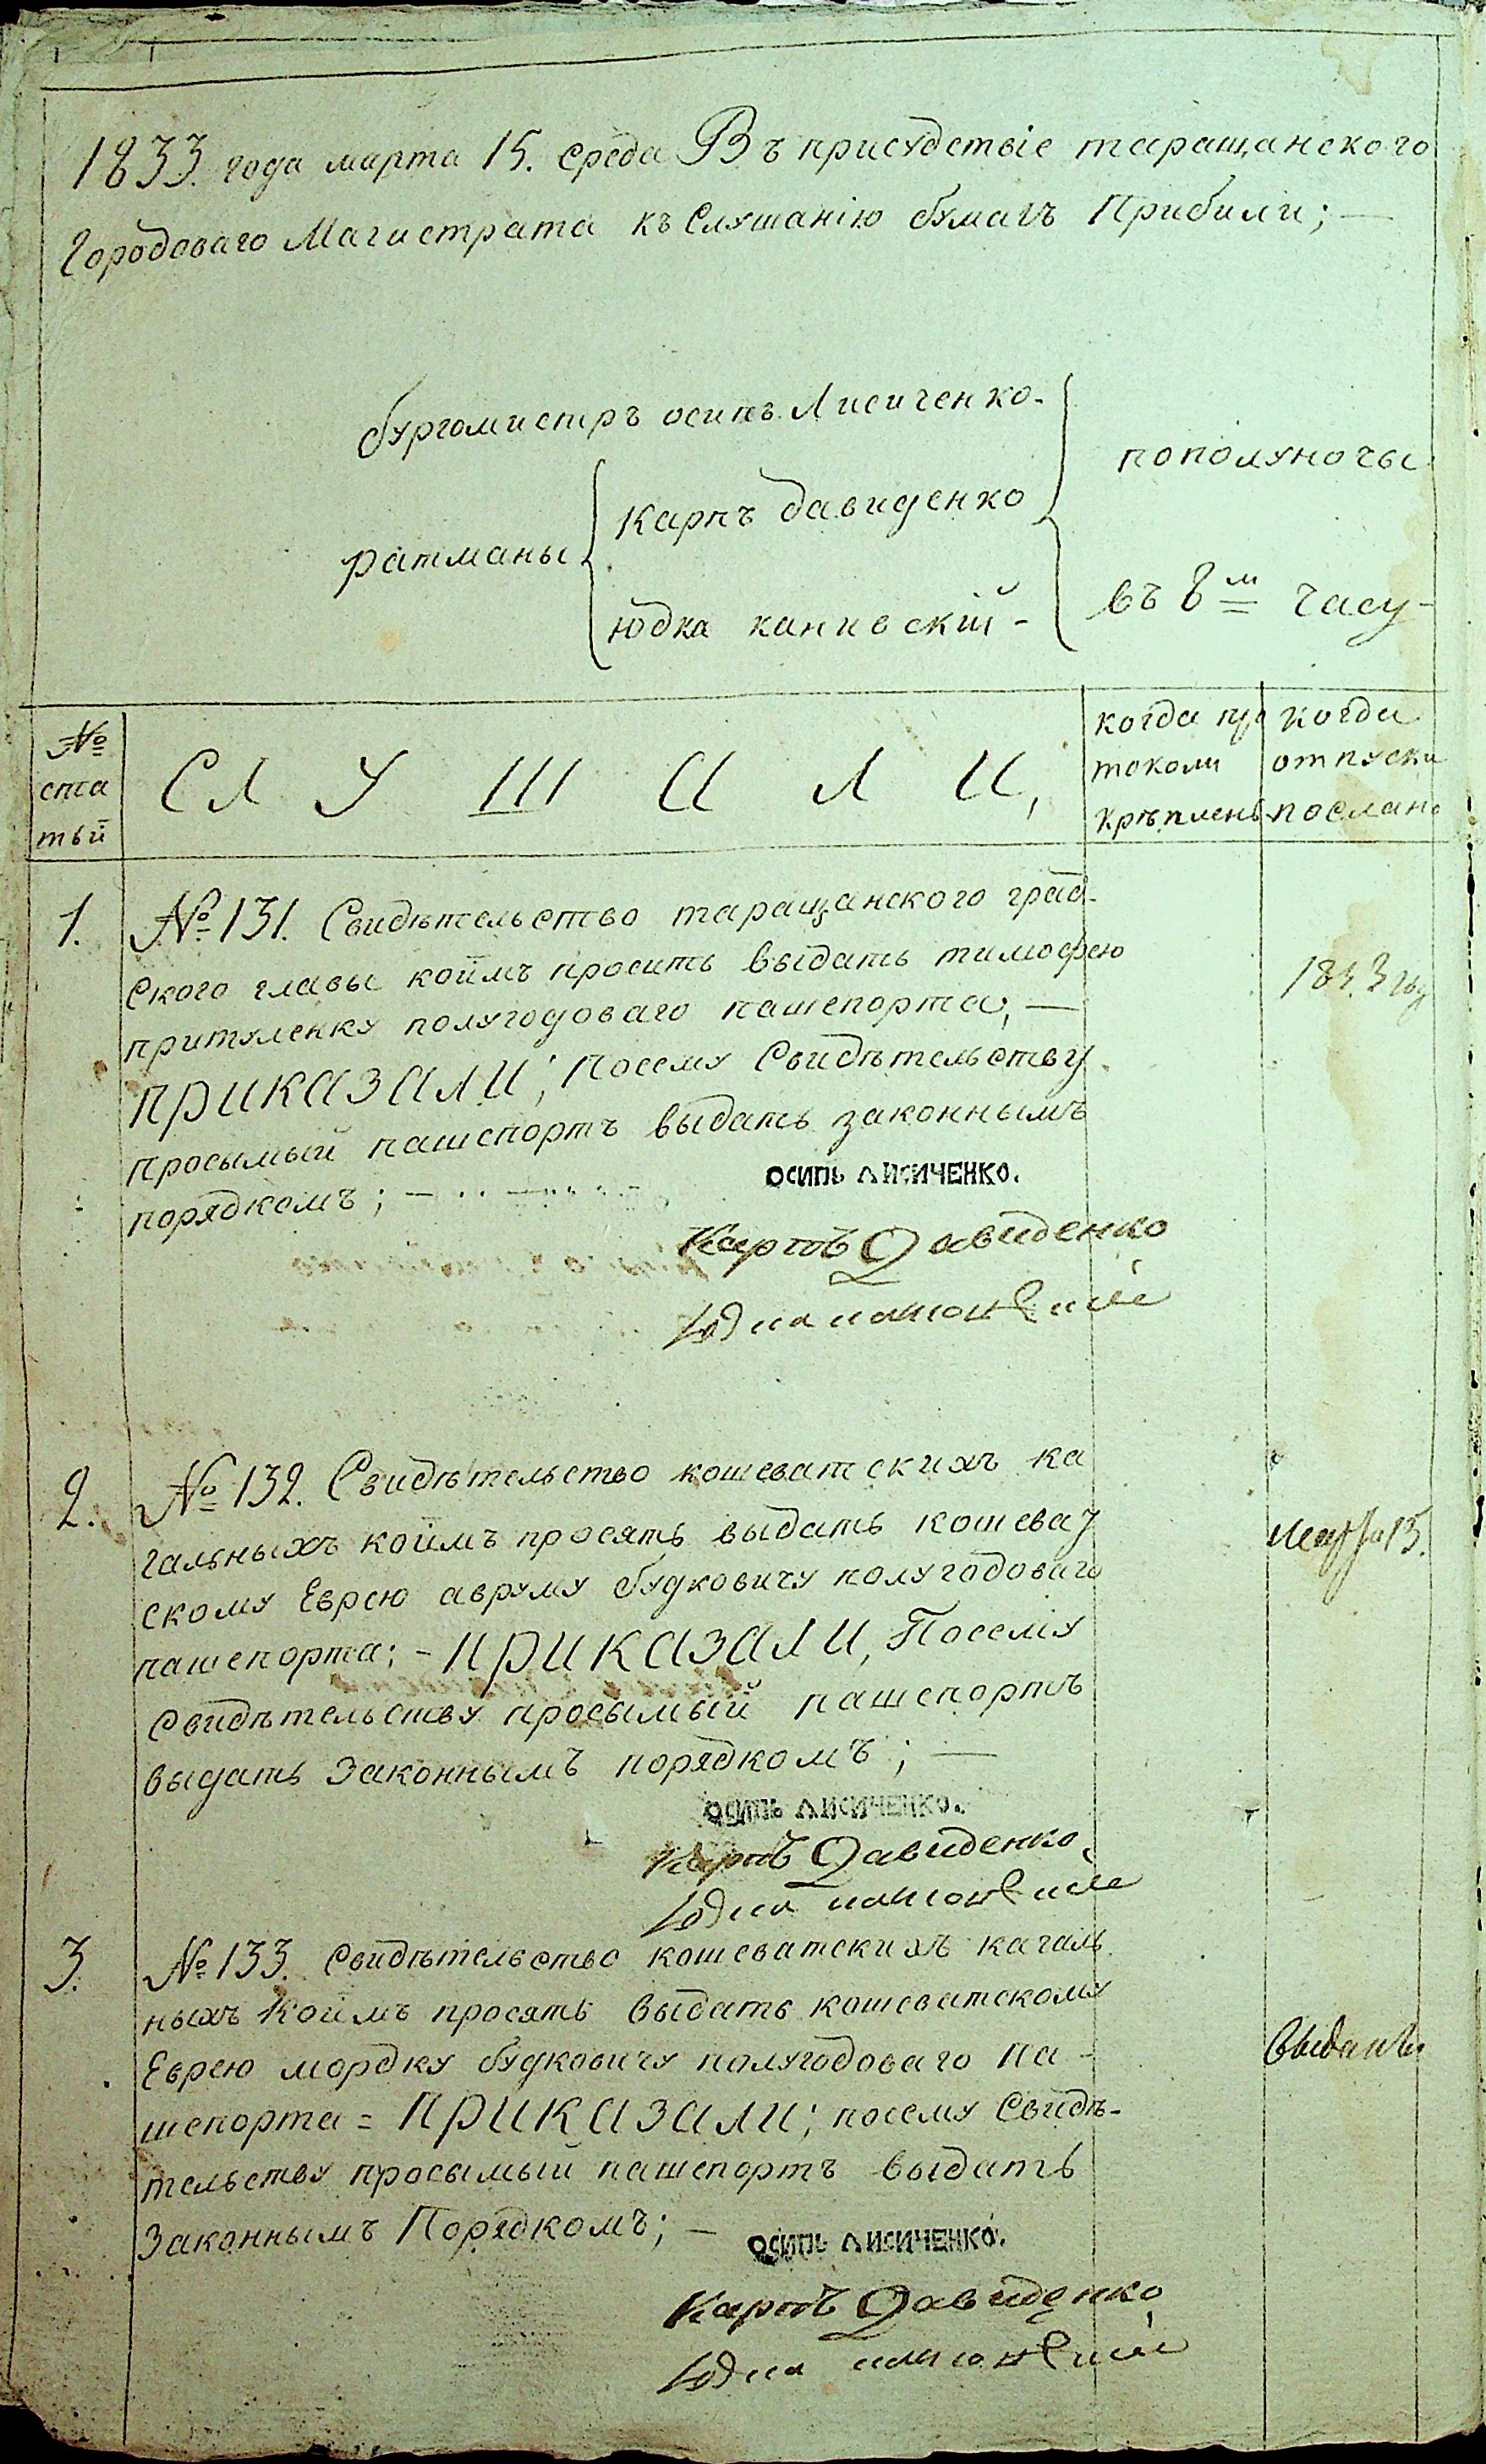 1833. года марта 15. среда Въ присудствіе таращанского
Городоваго Магистрата къ Слушанію бумагъ Прибили; —
бургомистръ осипъ Лисиченко-
пополуночы
ратманы
Карпъ давиденко
юдка каневскій -
въ 8м часу-
№ ста тьй
СЛУШАЛИ,
когда про токоли крѣплены
когда отпуски послани
1. № 131. Свидѣтельство таращанского град-
ского главы коимъ просить выдать тимофею
притуленку полугодоваго пашепорта, —
ПРИКАЗАЛИ; Посему Свидѣтельству
просымый пашепортъ выдать законнымъ
порядкомъ; —
осипъ лисиченко.
Карпъ Давиденко
1833 год
2. № 132. Свидѣтельство кошеватскихъ ка
гальныхъ коимъ просять выдать кошеват
скому Еврею авруму будковичу полугодоваго
пашепорта; - ПРИКАЗАЛИ, Посему
Свидѣтельству просымый пашепортъ
выдать Законнымъ порядкомъ; —
осипъ лисиченко.
Карпъ Давиденко
Марта 15.
3. № 133. Свидѣтельство кошеватскихъ кагаль
ныхъ Коимъ просять выдать кошеватскому
Еврею мордку будковичу полугодоваго па-
шепорта = ПРИКАЗАЛИ; посему Свидѣ-
тельству просымый пашепортъ выдать
Законнымъ Порядкомъ; —
осипъ лисиченко.
Карпъ Давиденко
выданы